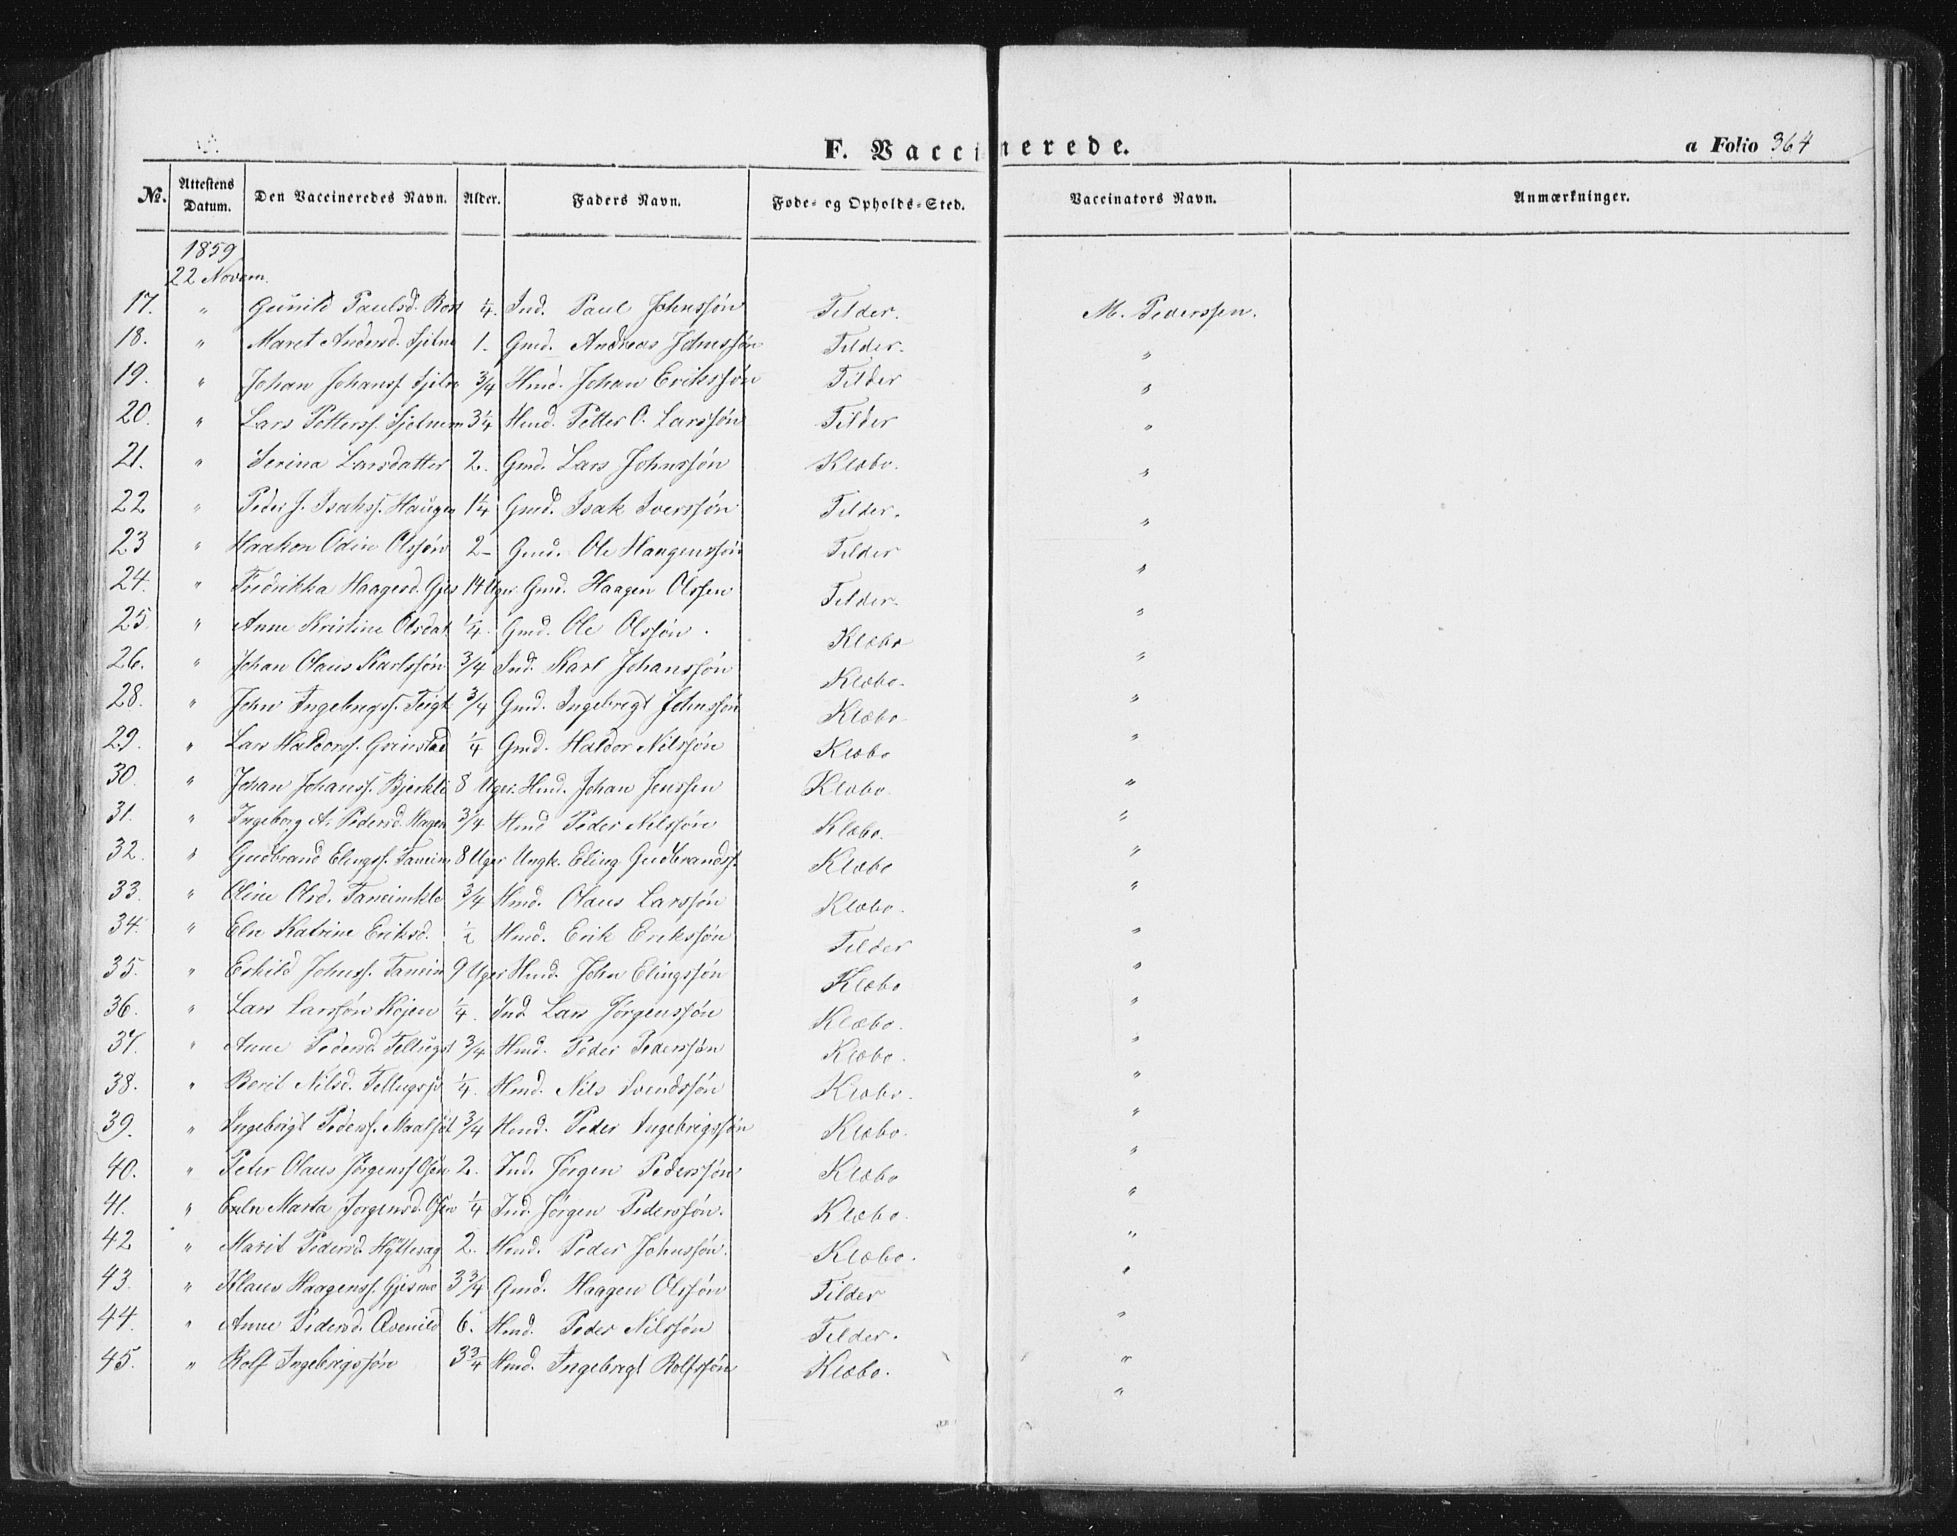 F. Vaccinerede.
a Folio 364
No. Attestens Datum. Den Vaccineredes Navn. Alder. Faders Navn. Føde- og Opholds-Sted. Vaccinators Navn. Anmærkninger.
1859
22 Novem.
17. " Gunild Paulsd. ¼. Ind. Paul Johnssøn Tilder. M. Pederssen.
18. " Maret Andersd. 1. Gmd. Andreas Johnssøn Tilder. "
19. " Johan Johanss. ¾ Hmd. Johan Erikssøn Tilder "
20. " Lars Petterss. 3¼ Hmd. Petter O. Larssøn Tilder "
21. " Serina Larsdatter 2. Gmd. Lars Johnssøn Klæbo. "
22 " Peder J. Isakss. Haugen 1¼ Gmd. Isak Iverssøn Tilder. "
23 " Haakon Odin Olssøn 2- Gmd. Ole Haagenssøn Tilder "
24. " Fredrikka Haagesd. Gjes 14 Uger. Gmd. Haagen Olssen Tilder. "
25. " Anne Kristine Olsdat ¼. Gmd. Ole Olssøn. Klæbo "
26. " Johan Olaus Karlssøn ¾ Ind. Karl Johanssøn Klæbo. "
28. " John Ingebregss. Teigt ¾ Gmd. Ingebregt Johnssøn Klæbo "
29. " Lars Haldorss. Grinstad ¼ Gmd. Haldor Nilssøn Klæbo "
30. " Johan Johanss. Bjerkli 8 Uger. Hmd. Johan Jenssen Klæbo. "
31. " Ingeborg A. Pedersd. Hagen ¾ Hmd Peder Nilssøn Klæbo. "
32. " Gudbrand Elingss. Taneim 8 Uger Ungk. Eling Gudbrandss. Klæbo "
33. " Oline Olsd. Taneimkle ¾ Hmd. Olaus Larssøn Klæbo. "
34. " Eln Katrine Eriksd. ½ Hmd. Erik Erikssøn Tilder "
35. " Eskild Johnss. Taneim 9 Uger Hmd. John Elingssøn Klæbo "
36. " Lars Larssøn ¼. Ind. Lars Jørgenssøn Klæbo. "
37. " Anne Pedersd. Tellugst ¾ Hmd. Peder Pederssøn Klæbo. "
38. " Berit Nilsd. Tellugst ¼. Hmd. Nils Svendssøn Klæbo. "
39. " Ingebrigt Pederss. Maalsjøt ¾ Hmd. Peder Ingebrigssøn Klæbo. "
40. " Peter Olaus Jørgenss Øsen 2. Ind. Jørgen Pederssøn Klæbo "
41. " Marta Jørgensd. Øsen ¼ Ind. Jørgen Pederssøn. Klæbo. "
42 " Marit Pedersd. Hyttesag 2. Hmd. Peder Johnssøn. Klæbo. "
43. " Klaus Haagenss. Gjesmo 3¾ Gmd. Haagen Olssøn Tilder "
44. " Anne Pedersd. Qvenild 6. Hmd. Peder Nilssøn Tilder. "
45. " Rolf Ingebrigssøn 3¾ Hmd. Ingebregt Rolfssøn Klæbo. "